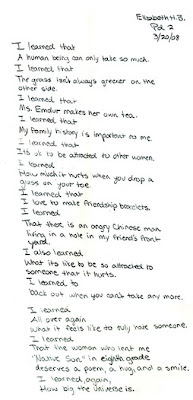 Elizabeth H.B.
Pd. 2
3/20/08
I learned that
A human being can only take so much.
I learned that
The grass isn't always greener on the
other side.
I learned that
Ms. Emdur makes her own tea.
I learned that
My family history is important to me.
I learned that
Its ok to be attracted to other women.
I learned
How much it hurts when you drop a
glass on your toe
I learned that
I love to make friendship bracelets.
I learned
That there is an angry Chinese man
living in a hole in my friend's front
yard.
I also learned
what its like to be so attracted to
someone that it hurts.
I learned to
back out when you can't take any more.
I learned
All over again
what it feels like to truly love someone.
I learned
That the woman who lent me
"Native Son" in eighth grade
deserves a poem, a hug, and a smile.
I learned, again,
How big the universe is.